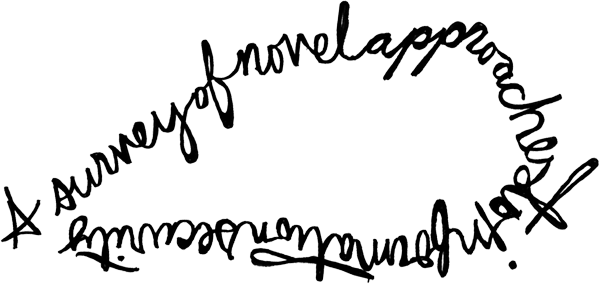 A survey of novel approaches to information security